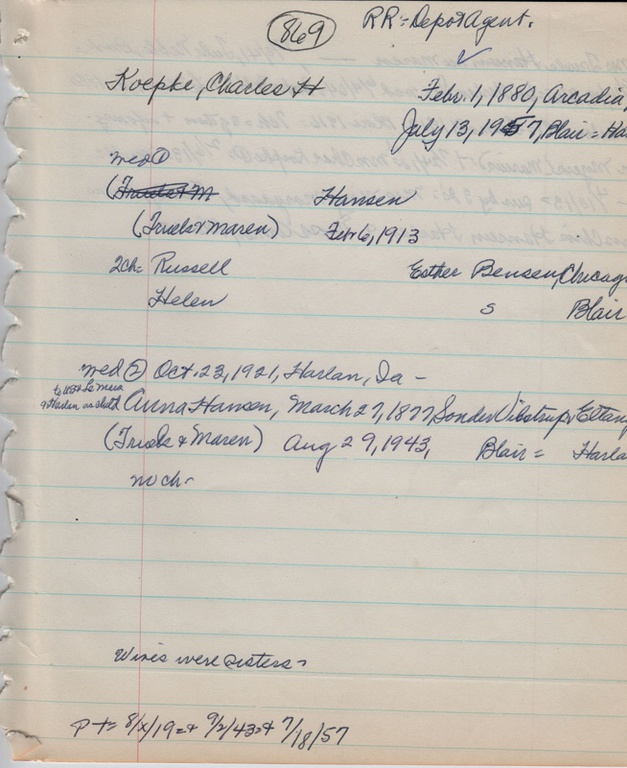 869 RR = Depot Agent.
Koepke, Charles H Febr. 1, 1880, Arcadia,
July 13, 1957, Blair = Ha
med ①
( Hansen
(Truels & Maren) Febr 6, 1913
2ch = Russell Esther Bensen, Chicag
Helen s Blair
med ② Oct. 23, 1921, Harlan, Ia -
to
& Harlan as child Anna Hansen, March 27, 1877, Sonder Vilstrup, Eltang
(Truels & Maren) Aug 29, 1943, Blair = Harla
no ch -
Wives were sisters -
P += 8/x/19 =+ 9/2/43 =+ 7/18/57